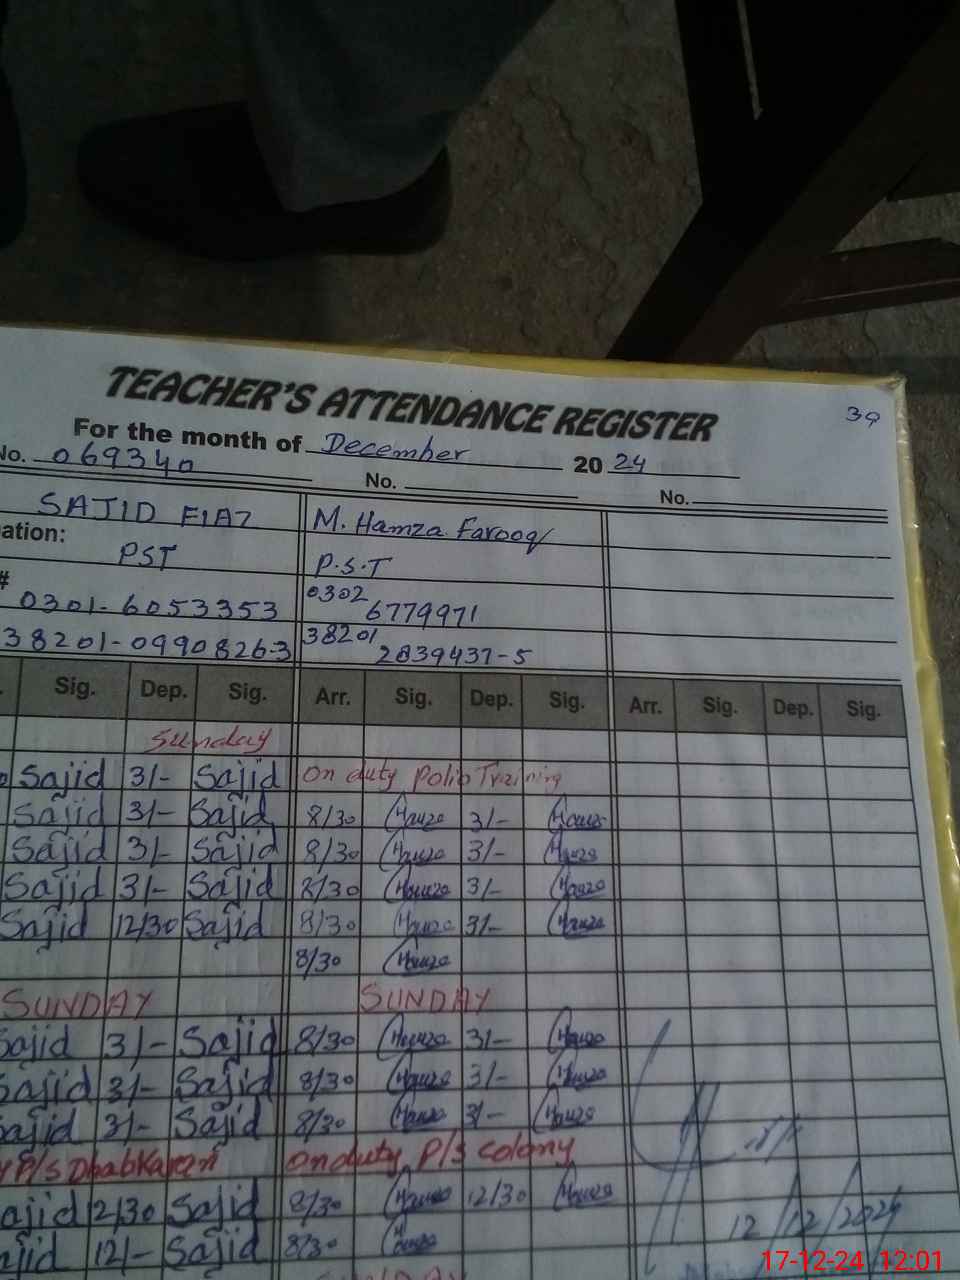 39
TEACHER'S ATTENDANCE REGISTER
For the month of December 2024
No. 069340 No. No.
SAJID FIAZ M. Hamza Farooq
ation:
PST P.S.T
#
0301-6053353 0302 6779971
38201-0990826-3 38201 2839437-5
Sig. Dep. Sig. Arr. Sig. Dep. Sig. Arr. Sig. Dep. Sig.
Sunday
Sajid 3/- Sajid On duty Polio Training
Sajid 3/- Sajid 8/30 Hamza 3/- Hamza
Sajid 3/- Sajid 8/30 Hamza 3/- Hamza
Sajid 3/- Sajid 8/30 Hamza 3/- Hamza
Sajid 12/30 Sajid 8/30 Hamza 3/- Hamza
8/30 Hamza
SUNDAY SUNDAY
Sajid 3/- Sajid 8/30 Hamza 3/- Hamza
Sajid 3/- Sajid 8/30 Hamza 3/- Hamza
Sajid 3/- Sajid 8/30 Hamza 3/- Hamza
P/S Dhabkaran On duty P/S Colony
ajid 12/30 Sajid 8/30 Hamza 12/30 Hamza
ajid 12/- Sajid 8/30 Hamza
12/12/2024
SUNDAY
17-12-24 12:01